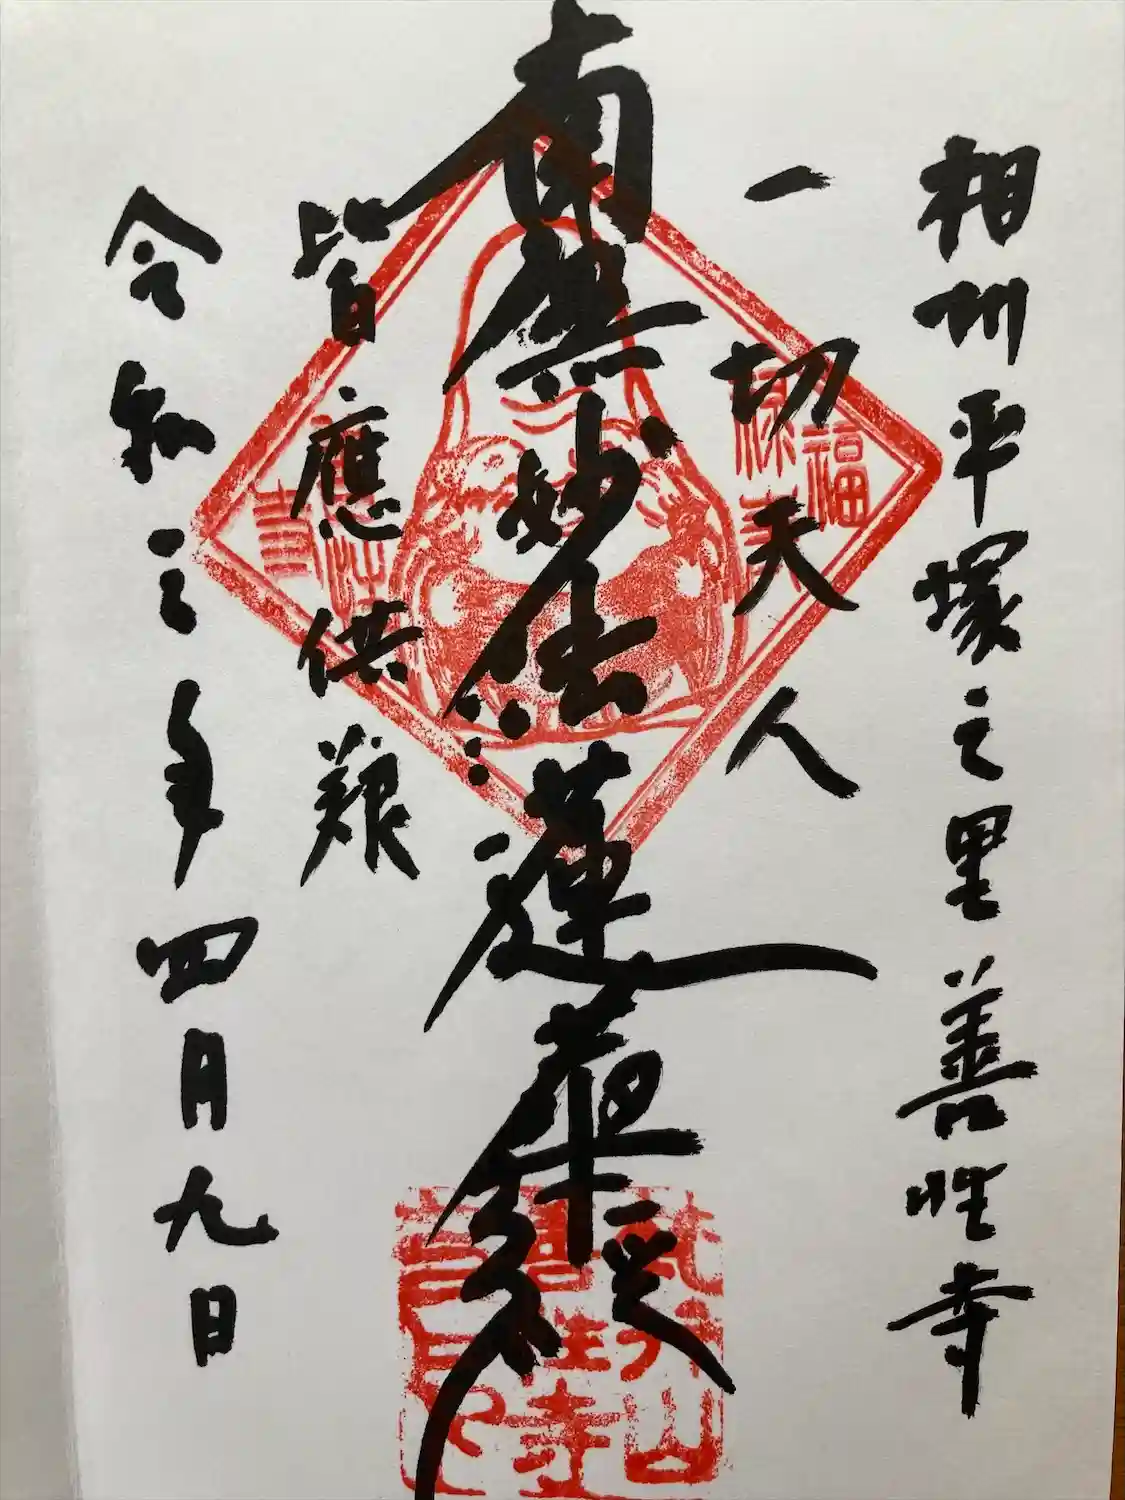 相州平塚之里善性寺
一切天人
南無妙法蓮華経
皆應供
令和三年四月九日
福
禄
善性寺
山